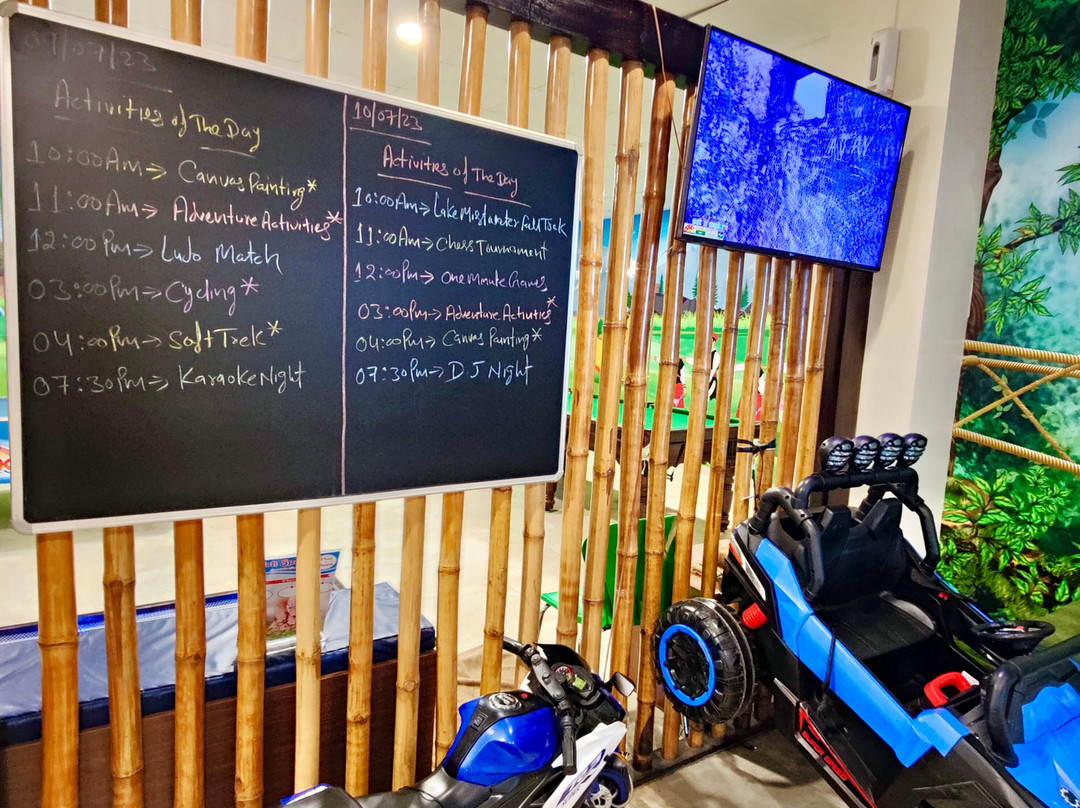 09/07/23
Activities of The Day
10:00Am⇒ Canvas Painting*
11:00Am⇒ Adventure Activities*
12:00Pm⇒ Ludo Match
03:00Pm⇒ Cycling*
04:00Pm⇒ Soft Trek*
07:30Pm⇒ Karaoke Night
10/07/23
Activities of The Day
10:00Am⇒ Lake Mist waterfall Trek
11:00Am⇒ Chess Tournament
12:00Pm⇒ One Minute Games
03:00Pm⇒ Adventure Activities*
04:00Pm⇒ Canvas Painting*
07:30Pm⇒ D J Night